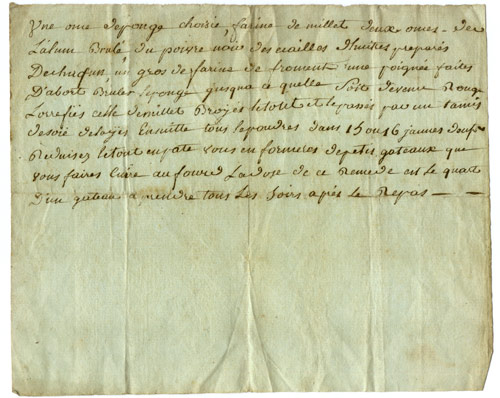 Une once deponge choisie farine de millet deux onces - de
L'alum Brulé du poivre noir des ecailles d'huitres preparés
De chacun un gros de farine de froment une poignée faites
D'abort Bruler leponge jusqua ce quelle soit devenue Rouge
Torrefiés celle de millet Broyés le tout et le passés par un tamis
de soie delayés Ensuitte tous les poudres dans 15 ou 16 jaunes deufs
Reduisez le tout en pate vous en formerés de petits gateaux que
vous faires Cuire au four La dose de ce Remede est le quart
D'un gateau a prendre tous Les soirs après le Repas —